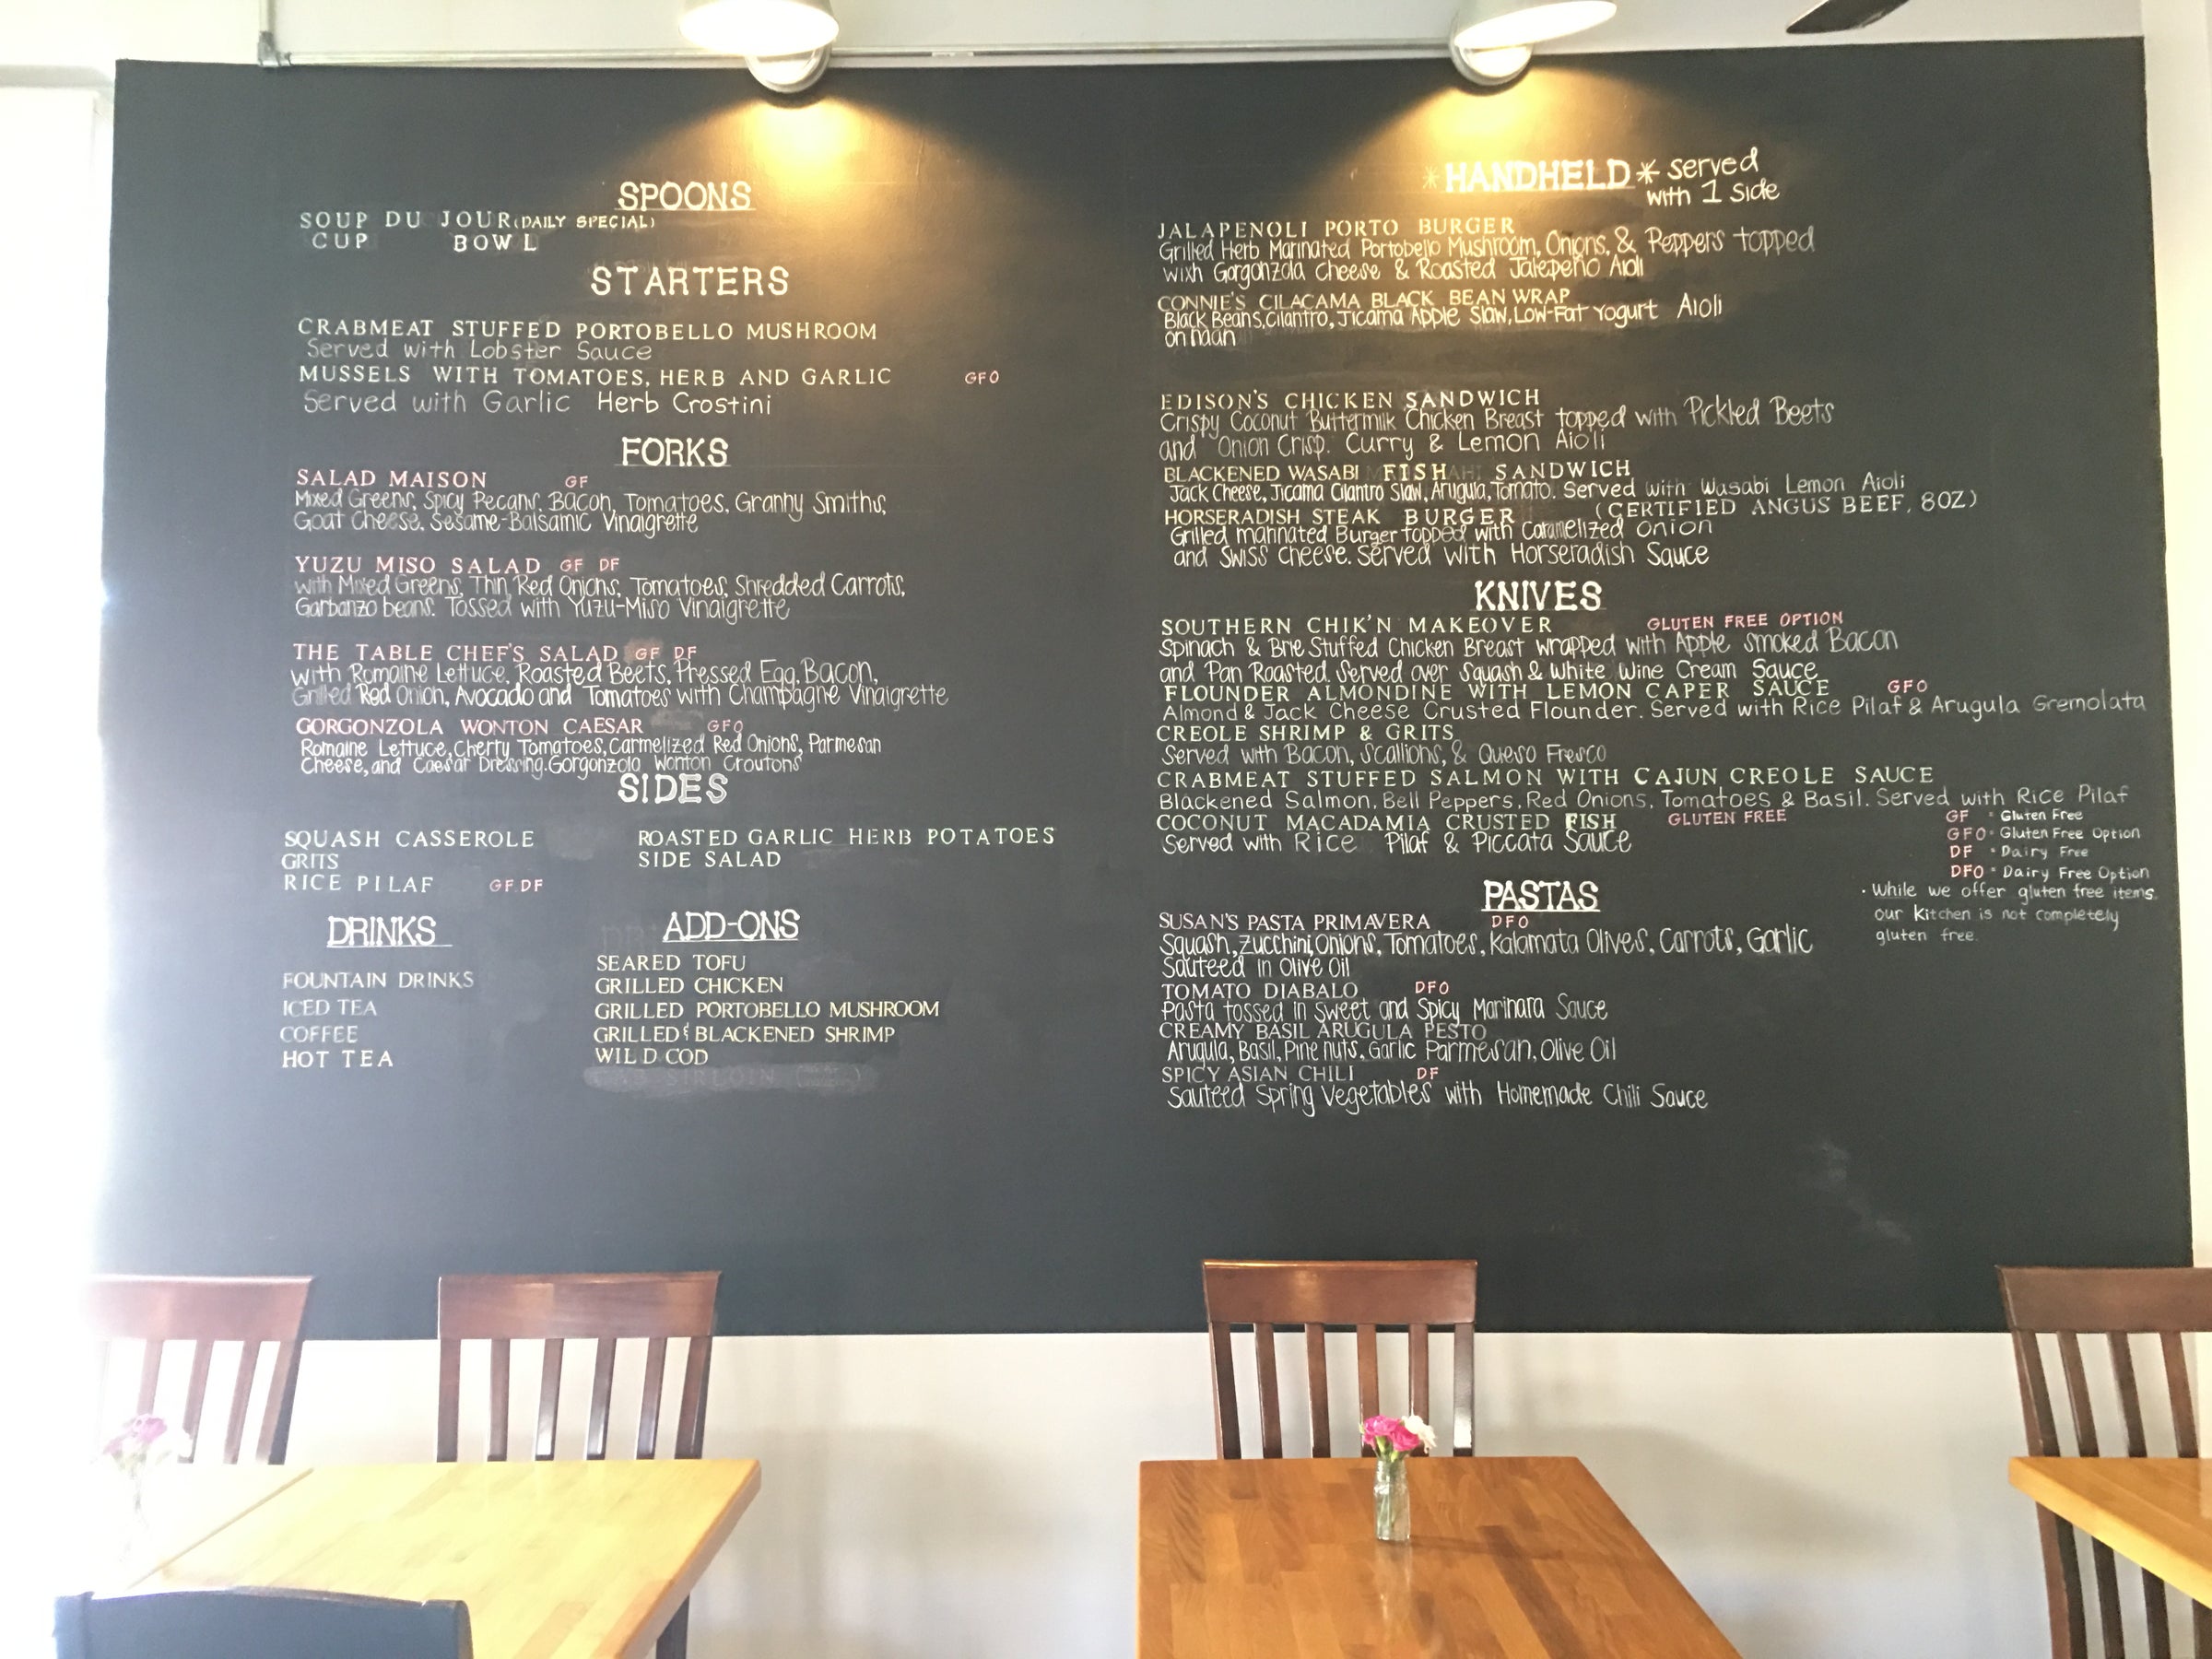 SPOONS
SOUP DU JOUR (DAILY SPECIAL)
CUP BOWL
STARTERS
CRABMEAT STUFFED PORTOBELLO MUSHROOM
Served with Lobster Sauce
MUSSELS WITH TOMATOES, HERB AND GARLIC GFO
Served with Garlic Herb Crostini
FORKS
SALAD MAISON GF
Mixed Greens, Spicy Pecans, Bacon, Tomatoes, Granny Smiths,
Goat Cheese, Sesame-Balsamic Vinaigrette
YUZU MISO SALAD GF DF
with Mixed Greens, Thin Red Onions, Tomatoes, Shredded Carrots,
Garbanzo beans. Tossed with Yuzu-Miso Vinaigrette
THE TABLE CHEF'S SALAD GF DF
with Romaine Lettuce, Roasted Beets, Pressed Egg, Bacon,
Grilled Red Onion, Avocado and Tomatoes with Champagne Vinaigrette
GORGONZOLA WONTON CAESAR GFO
Romaine Lettuce, Cherry Tomatoes, Carmelized Red Onions, Parmesan
Cheese, and Caesar Dressing. Gorgonzola Wonton Croutons
SIDES
SQUASH CASSEROLE ROASTED GARLIC HERB POTATOES
GRITS SIDE SALAD
RICE PILAF GF DF
DRINKS
FOUNTAIN DRINKS
ICED TEA
COFFEE
HOT TEA
ADD-ONS
SEARED TOFU
GRILLED CHICKEN
GRILLED PORTOBELLO MUSHROOM
GRILLED & BLACKENED SHRIMP
WILD COD
*HANDHELD* served
with 1 side
JALAPENOLI PORTO BURGER
Grilled Herb Marinated Portobello Mushroom, Onions, & Peppers topped
with Gorgonzola Cheese & Roasted Jalepeño Aioli
CONNIE'S CILACAMA BLACK BEAN WRAP
Black Beans, Cilantro, Jicama Apple Slaw, Low-Fat Yogurt Aioli
on naan
EDISON'S CHICKEN SANDWICH
Crispy Coconut Buttermilk Chicken Breast topped with Pickled Beets
and Onion Crisp. Curry & Lemon Aioli
BLACKENED WASABI FISH SANDWICH
Jack Cheese, Jicama Cilantro Slaw, Arugula, Tomato. Served with Wasabi Lemon Aioli
HORSERADISH STEAK BURGER (CERTIFIED ANGUS BEEF, 8OZ)
Grilled marinated Burger topped with Caramelized onion
and Swiss cheese. Served with Horseradish Sauce
KNIVES
SOUTHERN CHIK'N MAKEOVER GLUTEN FREE OPTION
Spinach & Brie Stuffed Chicken Breast wrapped with Apple smoked Bacon
and Pan Roasted. Served over Squash & White Wine Cream Sauce
FLOUNDER ALMONDINE WITH LEMON CAPER SAUCE GFO
Almond & Jack Cheese Crusted Flounder. Served with Rice Pilaf & Arugula Gremolata
CREOLE SHRIMP & GRITS
Served with Bacon, Scallions, & Queso Fresco
CRABMEAT STUFFED SALMON WITH CAJUN CREOLE SAUCE
Blackened Salmon, Bell Peppers, Red Onions, Tomatoes & Basil. Served with Rice Pilaf
COCONUT MACADAMIA CRUSTED FISH GLUTEN FREE
Served with Rice Pilaf & Piccata Sauce
PASTAS
SUSAN'S PASTA PRIMAVERA DFO
Squash, Zucchini, Onions, Tomatoes, Kalamata Olives, Carrots, Garlic
Sauteed in Olive Oil
TOMATO DIABALO DFO
Pasta tossed in Sweet and Spicy Marinara Sauce
CREAMY BASIL ARUGULA PESTO
Arugula, Basil, Pine nuts, Garlic Parmesan, Olive Oil
SPICY ASIAN CHILI DF
Sauteed Spring Vegetables with Homemade Chili Sauce
GF = Gluten Free
GFO = Gluten Free Option
DF = Dairy Free
DFO = Dairy Free Option
• While we offer gluten free items
our Kitchen is not completely
gluten free.